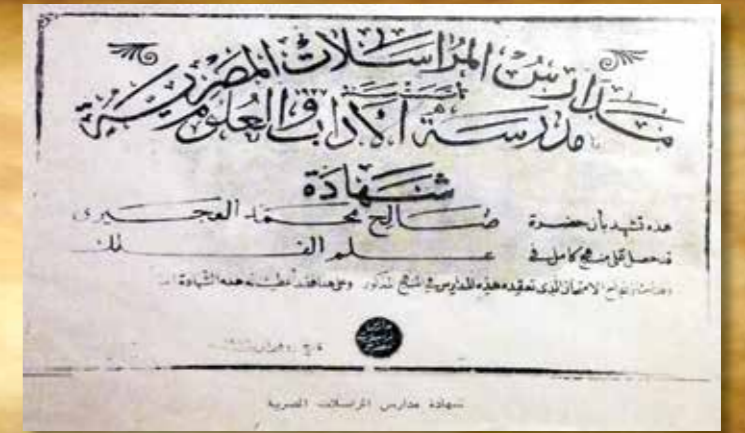 مدارس المراسلات المصرية
تأسست سنة
مدرسة الآداب والعلوم
شهادة
هذه تشهد بأن حضرة صالح محمد العجيرى
قد حصل على منهج كامل فى علم الفلك
الامتحان الذى تعقده هذه المدارس فى منهج مذكور وعلى هذا فقد أعطيت له هذه الشهادة
شهادة مدارس المراسلات المصرية